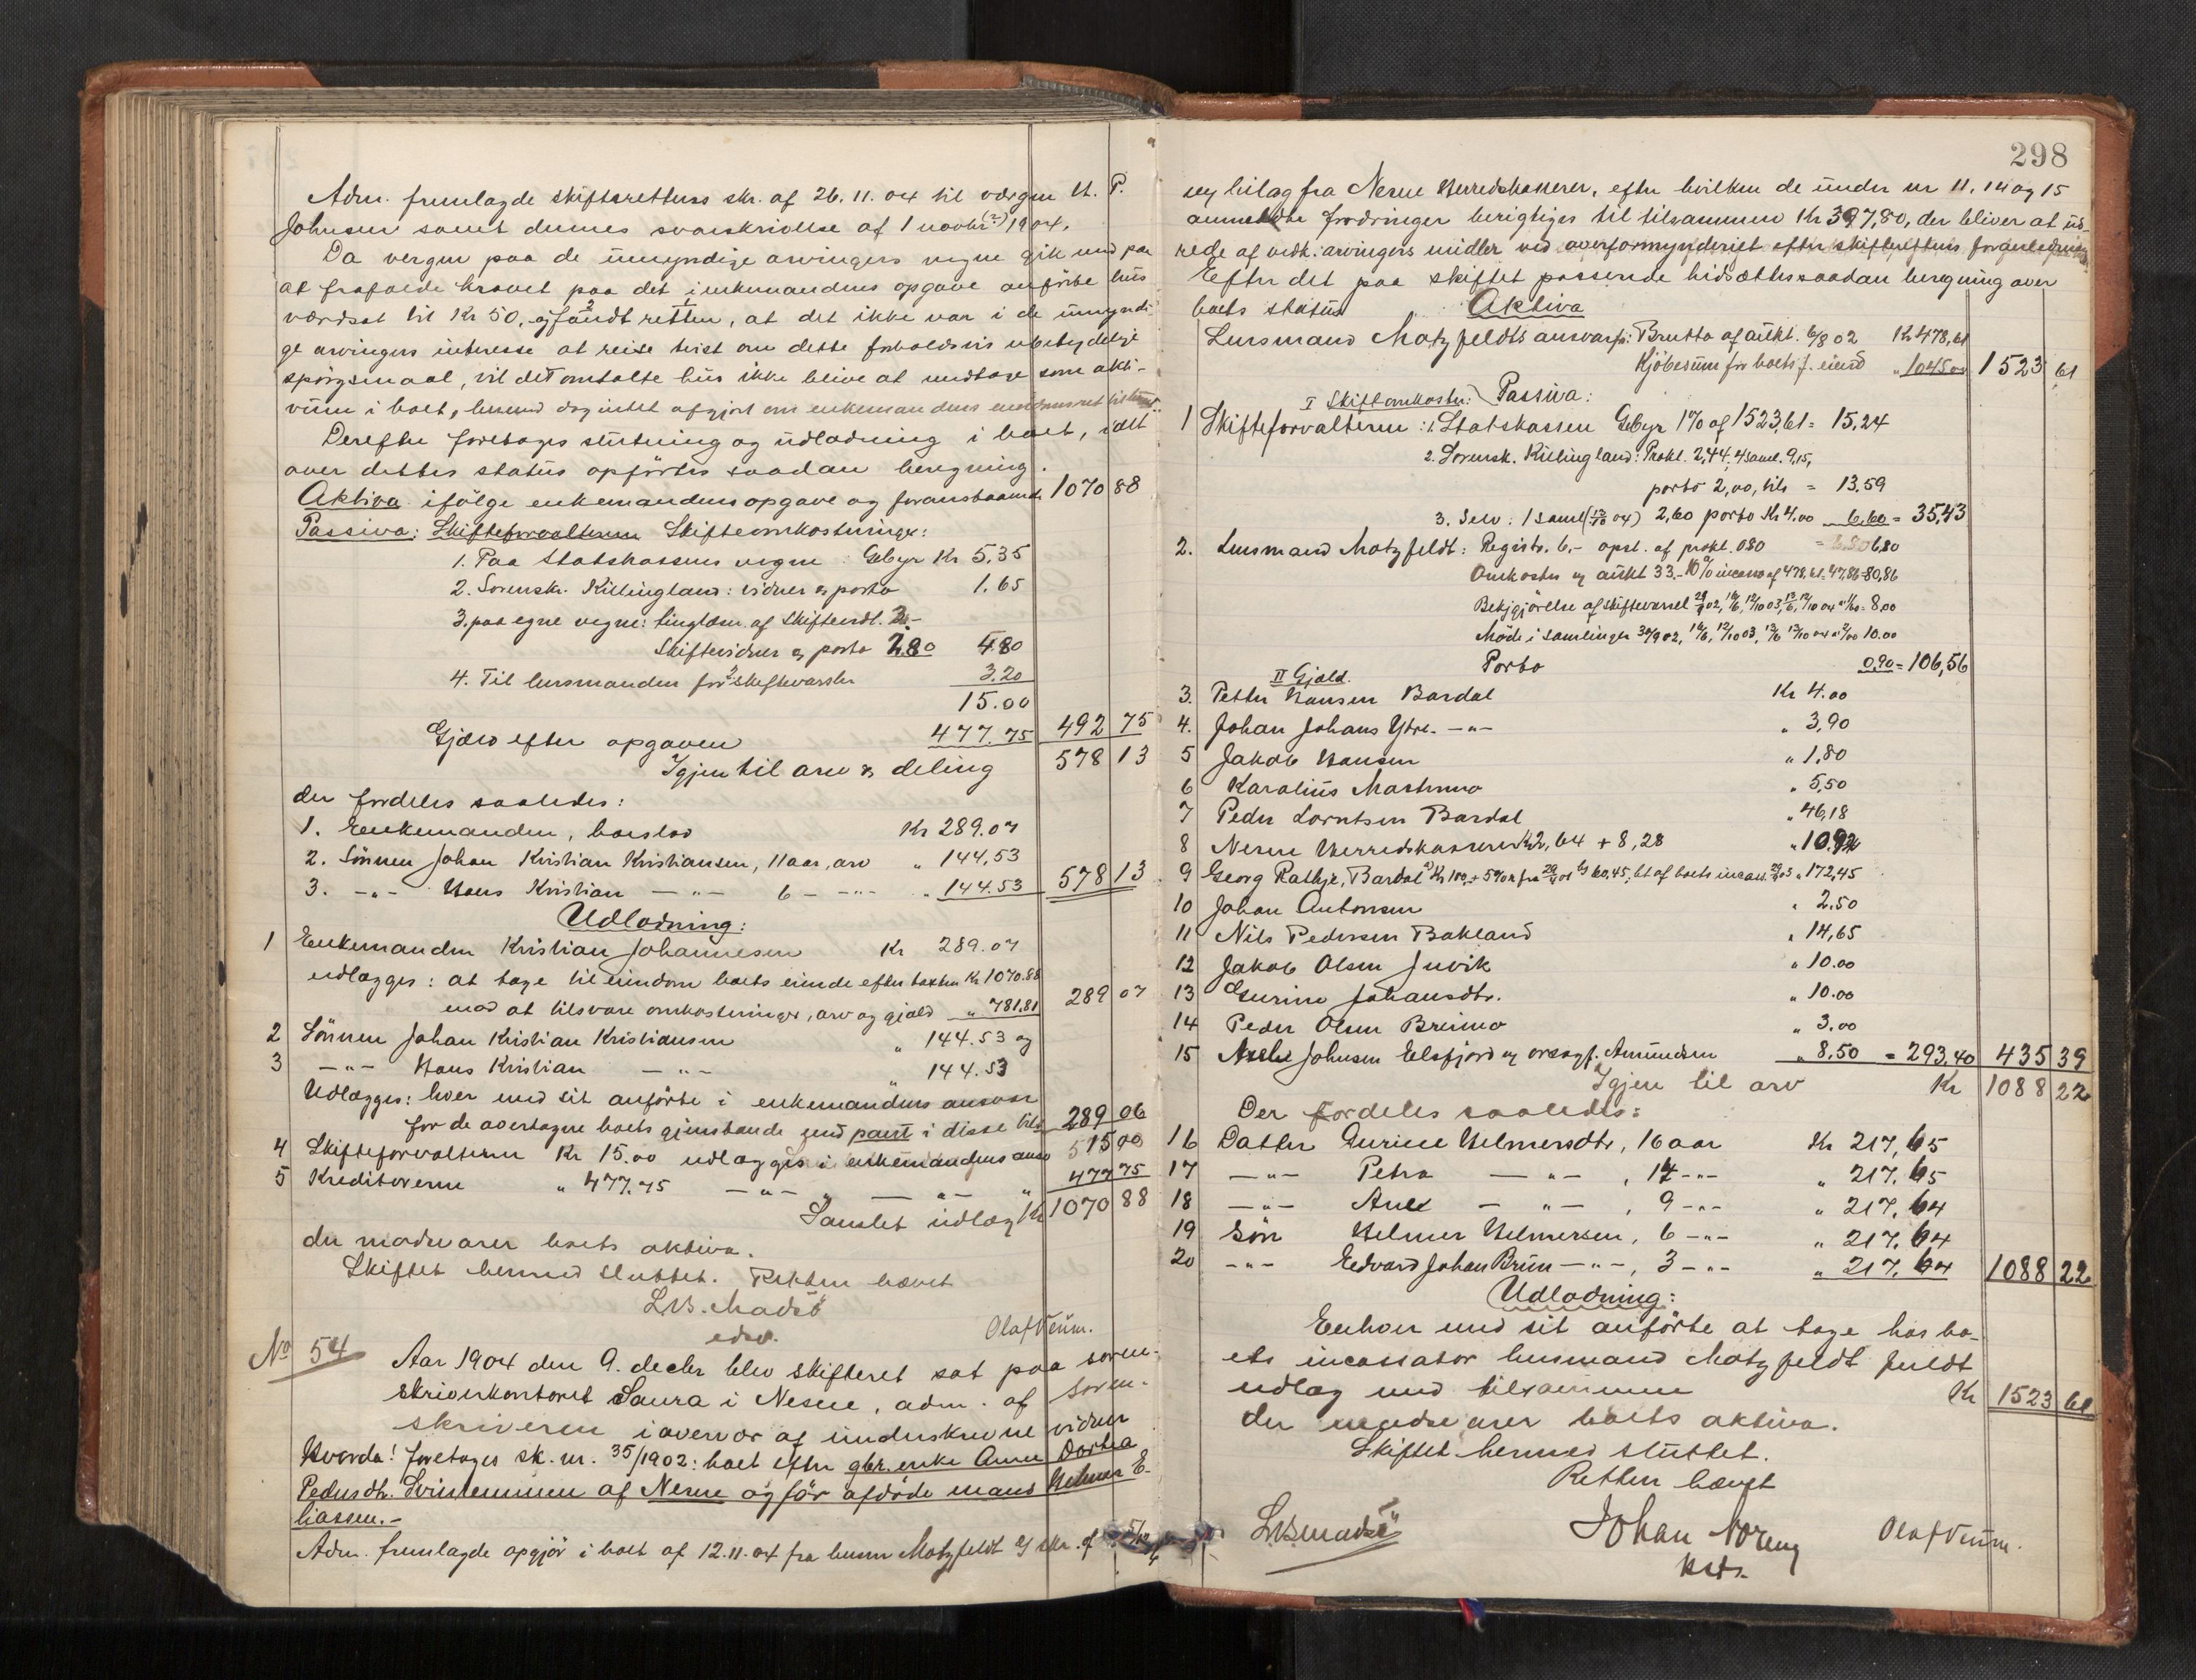 Adm. fremlagde skifterettens skr. af 26.11.04 til værgen H. P.
Johnsen samt dennes svarskrivelse af 1 novbr (?) 1904.
Da vergen paa de umyndige arvingers vegne gik med paa
at frafalde kravet paa det i enkemandens opgave anførte hus
værdsat til Kr 50, og fandt retten, at det ikke var i de umyndi-
ge arvingers interesse at reise tvist om dette forholdsvis ubetydelige
spørgsmaal, vil det omtalte hus ikke blive at medtage som akti-
vum i boet, hermed dog intet afgjort om enkemandens eiendomsret til huset.
Derefter foretages slutning og udlodning i boet, idet
over dettes status opførtes saadan beregning.
Aktiva ifølge enkemandens opgave og foranstaaende 1070 88
Passiva: Skifteforvalteren Skifteomkostninger:
1. Paa Statskassens vegne: Gebyr Kr 5,35
2. Sorenskr. Killingland: vidner & porto 1.65
3. paa egne vegne: tinglæsn. af Skifteudl. 2.-
Skiftevidner & porto 2.80 4.80
4. Til lensmanden for 2 skiftevarsler 3.20
15.00
Gjæld efter opgaven 477.75 492 75
Igjen til arv & deling 578 13
der fordeles saaledes:
1. Enkemanden, boeslod Kr 289.07
2. Sønnen Johan Kristian Kristiansen, 11 aar, arv " 144,53
3. -"- Hans Kristian -"- 6 -"- " 144.53 578 13
Udlodning:
1 Enkemanden Kristian Johannesen Kr 289.07
udlægges: at tage til eiendom boets eiende efter taxten Kr 1070.88
mod at tilsvare omkostninger, arv og gjæld " 781.81 289 07
2 Sønnen Johan Kristian Kristiansen " 144.53 og
3 -"- Hans Kristian -"- " 144.53
Udlægges: hver med sit anførte i enkemandens ansvar
for de overtagne boets gjenstande med pant i disse tils. 289 06
4 Skifteforvalteren Kr 15.00 udlægges i enkemandens ansv 15 00
5 Kreditorerne " 477.75 -"- " -"- " 477 75
Samlet udlæg Kr 1070 88
der modsvarer boets aktiva.
Skiftet hermed sluttet. Retten hævet
L.B. Madsö
edsv. Olaf Veum.
No 54 Aar 1904 den 9. decbr blev skifteret sat paa soren-
skriverkontoret Saura i Nesne, adm. af soren-
skriveren i overvær af underskrevne vidner
Hvorda! foretages sk. nr. 35/1902: boet efter gbr. enke Anne Dortea
Pedersdtr. Svinlemmen af Nesne og før afdøde mand Helmer E-
liassen.-
Adm. fremlagde opgjør i boet af 12.11.04 fra lensm Motzfeldt og skr. af
298
og bilag fra Nesne Herredskasserer, efter hvilken de under nr 11, 14 og 15
anmeldte fordringer berigtiges til tilsammen Kr 397,80, der bliver at ud-
rede af vedk. arvingers midler ved overformynderiet efter skifterettens foranledning
Efter det paa skiftet passerede hidsættes saadan beregning over
boets status Aktiva
Lensmand Motzfeldts ansvar f: Brutto af aukt. 6/8 02 Kr 478,61
Kjøbesum for boets f. eiend " 1045 00 1523 61
I Skifteomkostn: Passiva:
1 Skifteforvalteren: 1. Statskassen Gebyr 1% af 1523,61 = 15,24
2. Sorensk. Killingland: Prokl. 2,44, 4 saml. 9,15,
porto 2,00, tils = 13.59
3. Selv: 1 saml (12/10 04) 2,60 porto Kr 4.00 6.60 = 35,43
2. Lensmand Motzfeldt: Registr. 6,- opsl. af prokl. 0.80 = 6,80
Omkostn og aukt 33,- 10% incasso af 478,61 = 47,86 = 80,86
Bekjgjørelse af skiftevarsel = 8,00
Møde i samlinger 10.00
Porto 0,90 = 106,56
II Gjæld.
3. Petter Hansen Bardal Kr 4.00
4. Johan Johans Ytre. -"- " 3,90
5 Jakob Hansen " 1,80
6 Karolius Mastermo " 5,50
7 Peder Lorntsen Bardal " 46,18
8 Nesne Herredskasserer Kr 2,64 + 8,28 " 10.92
9 Georg Rathje, Bardal Kr 100,+ 5% r fra " 172,45
10 Johan Antonsen " 2.50
11 Nils Pedersen Bakland " 14,65
12 Jakob Olsen Juvik " 10.00
13 Gurine Johansdtr. " 10.00
14 Peder Olsen Breimo " 3.00
15 Johnsen Elsfjord og orsagf. Amundsen " 8,50 = 293,40 435 39
Igjen til arv Kr 1088 22
Der fordeles saaledes:
16 Datter Gurine Helmersdtr, 16 aar Kr 217,65
17 -"- Petra -"- , 14 -"- " 217.65
18 -"- Anne -"- , 9 -"- " 217.64
19 Søn Helmer Helmersen, 6 -"- " 217.64
20 -"- Edvard Johan Brun -"-, 3 -"- " 217.64 1088 22
Udlodning:
Enhver med sit anførte at tage hos bo-
ets incassator lensmand Motzfeldt fuldt
udlæg med tilsammen Kr 1523 61
der modsvarer boets aktiva.
Skiftet hermed sluttet.
Retten hævet
L.B. Madsö Johan Noreng Olaf Veum.